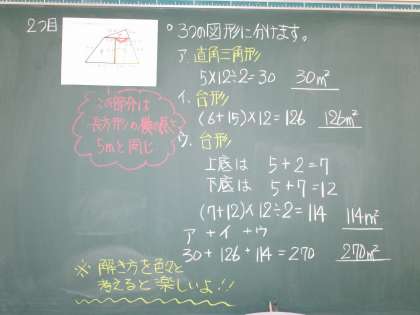 2つ目
。3つの図形に分けます。
ア. 直角三角形
5×12÷2=30 30m²
イ. 台形
(6+15)×12=126 126m²
ウ. 台形
上底は 5+2=7
下底は 5+7=12
(7+12)×12÷2=114 114m²
ア+イ+ウ
30+126+114=270 270m²
この部分は
長方形の横の長さ
5mと同じ
※ 解き方を色々と
考えると楽しいよ!!